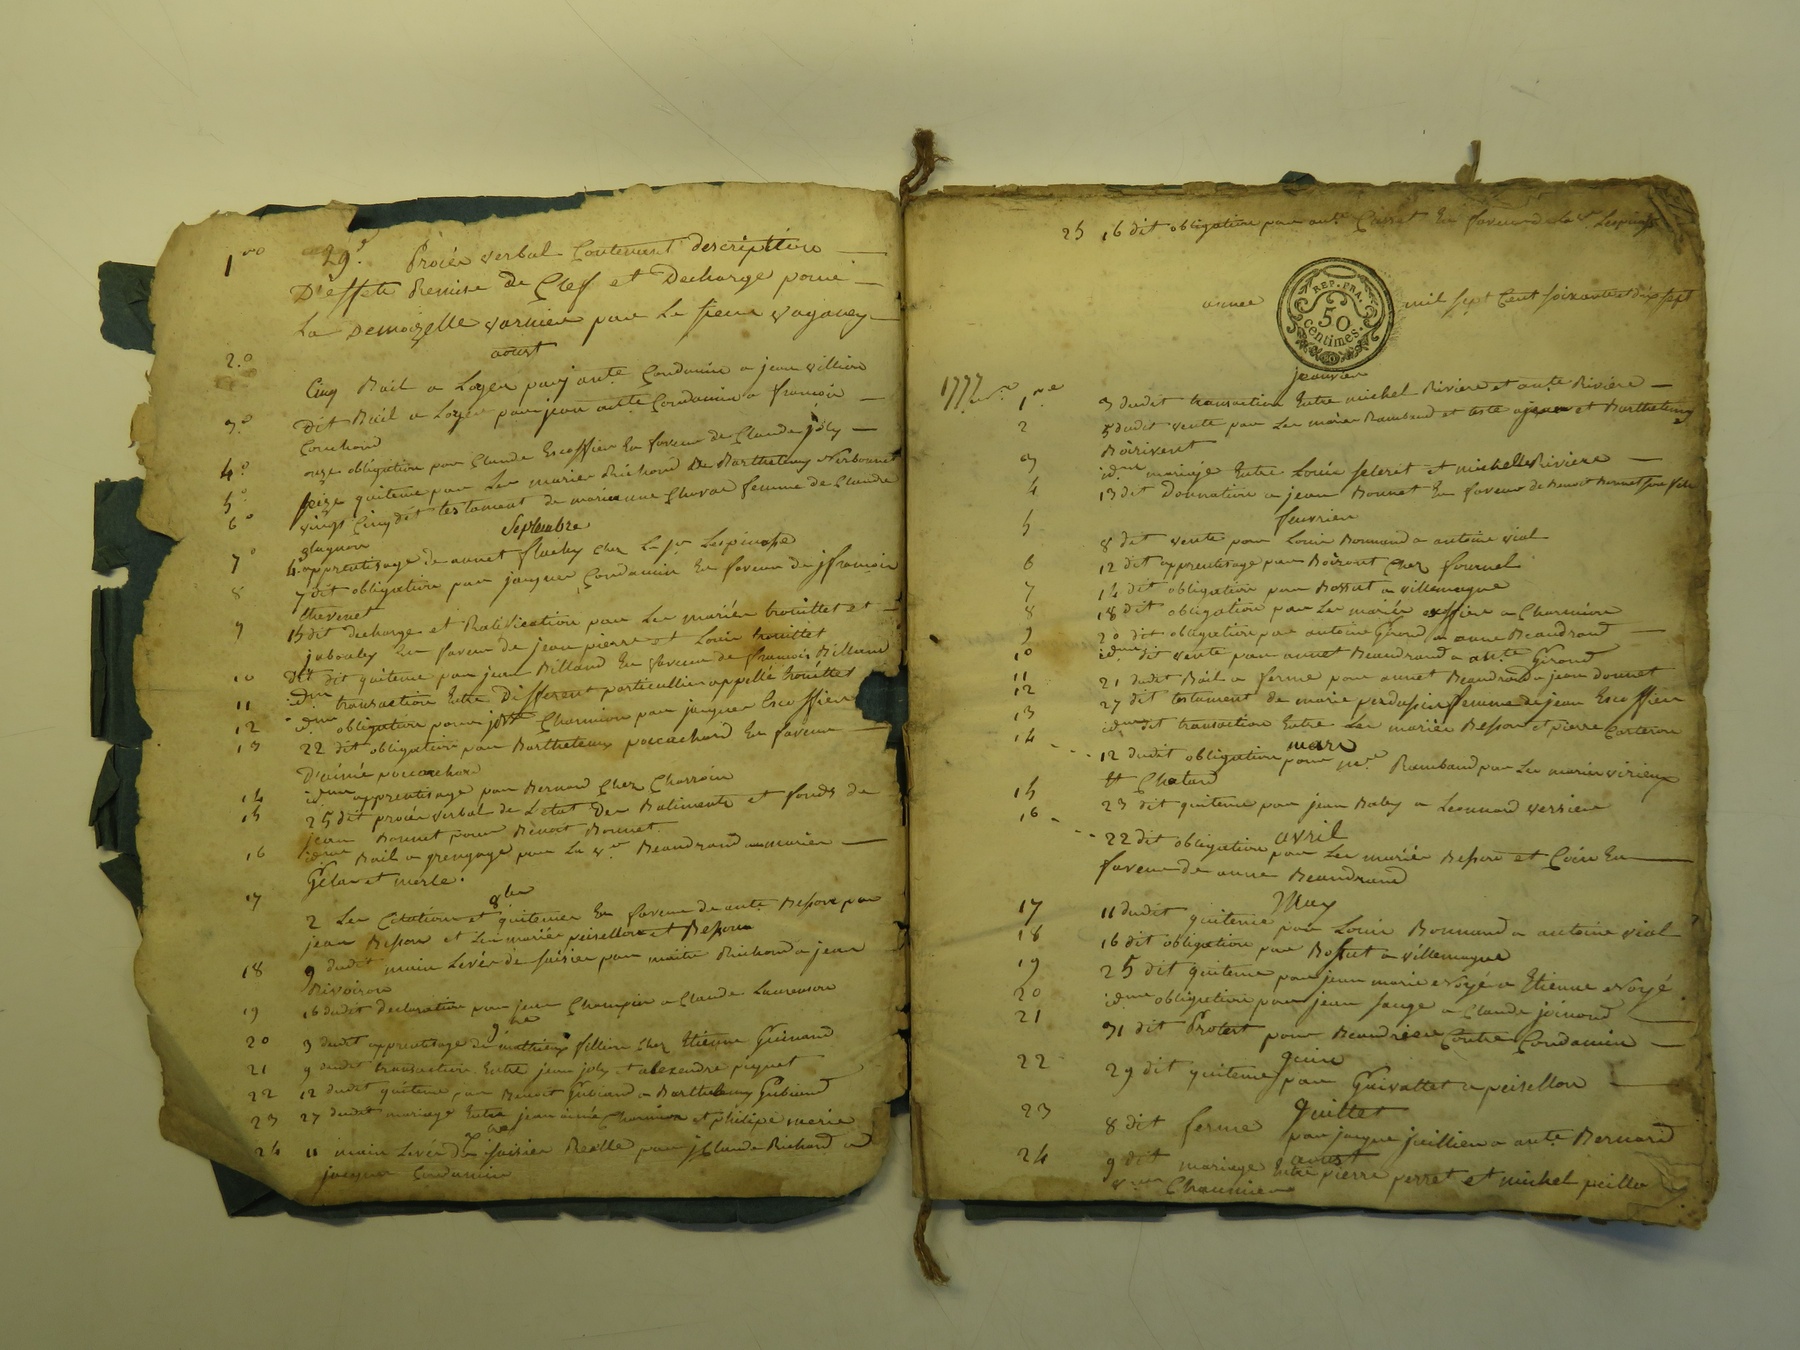 1ero 29e Procés verbal Contenant description
D'effets Remise de Clef et Decharge pour
La Demoizelle varnier par Le sieur vaganey
aoust
2.o Cinq Bail a Loyer par j ante Condamin a jean villion
3.o Dit Bail a Loyer par jean ante Condamin a francois
Couchoud
4.o onze obligation par Claude Escoffier En faveur de Claude joly
5.o seize quitence par Les mariés Richard De Barthelemy Nerbonnet
6.o vingt Cinq dit testament de marianne Chavas femme de Claude
septembre
7.o 4. apprentisage de annet flachy chez Le sr Lespinasse
8 7 dit obligation par jacques Condamin En faveur de j francois
thevenet
9 15 dit decharge et Ratification par Les mariés trouillet et
jabouley En faveur de jean pierre et Louis trouillet
10 dit quitence par jean Billand En faveur de francois Billiand
11 idem transaction Entre Different particulliers appellé trouillet
12 idem obligation pour Charmion par jacques Escoffier
13 22 dit obligation par Barthelemy poccachard En faveur
D'aimé poccachard
14 idem apprentisage par Bernard Chez Charroin
15 25 dit procés verbal de L'etat Des Batiments et fonds de
jean Bonnet pour Benoit Bonnet
16 idem Bail a grengage par La ve Beaudrand aux mariés
Gilas et merle.
8bre
17 2 Les Citation et quitences En faveur de ante Besson par
jean Besson et Les mariés peisellon et Besson
18 9 dudit main Levée de saisies par maitre Richard a jean
Rivoiron
19 16 dudit declaration par jean Champier a Claude Laurenson
9bre
20 3 dudit apprentisage de mathieux fillion chez Etienne Guinand
21 9 dudit transaction Entre jean joly et alexandre piquet
22 12 dudit quitence par Benoit Gubiand a Barthelemy Gubiand
23 27 dudit mariage Entre jean aimé Charmion et philipe merie
24 11 main Levée De saisies Reelle par j Claude Richard a
jacques Condamin
25 16 dit obligation par ante En faveur de Lespinasse
année mil sept Cent soixante et dix sept
REP. FRA.
50
centimes.
janvier
1777 1er 3 dudit transaction Entre michel Riviere et ante Riviere
2 5 dudit vente par Les mariés Rambaud et teste a et Barthelemy
Boirivent
3 idem mariage Entre Louis seleret et michelle Riviere
4 13 dit donnation a jean Bonnet En faveur de Benoit Bonnet son fils
fevrier
5 8 dit vente par Louis Bonnand a antoine vial
6 12 dit apprentisage par Boiront Chez fournel
7 14 dit obligation par Bossut a villemagne
8 18 dit obligation par Les mariés a Charmion
9 20 dit obligation par antoine Girond a anne Beaudrand
10 idem dit vente par annet Beaudrand a ante Girond
11 21 dudit Bail a ferme par annet Beaudrand a jean donnet
12 27 dit testament de marie femme de jean Escoffier
13 idem dit transaction Entre Les mariés Besson et pierre Carteron
mars
14 12 dudit obligation pour Me Rambaud par Les mariés virieux
et Chatard
15 23 dit quitence par jean Baby a Leonnard verriere
avril
16 22 dit obligation par Les mariés Besson et Coin En
faveur de anne Beaudrand
May
17 11 dudit quitence par Louis Bonnand a antoine vial
18 16 dit obligation par Bossut a villemagne
19 25 dit quitence par jean marie voyé a Etienne voyé
20 idem obligation par jean sauge a Claude joinond
21 31 dit Protest pour Beaudrier Contre Condamin
juin
22 29 dit quitence par Guivallet a peisellon
juillet
23 8 dit ferme par jacque juillien a ante Bernard
aoust
24 9 dit mariage Entre pierre perret et michel